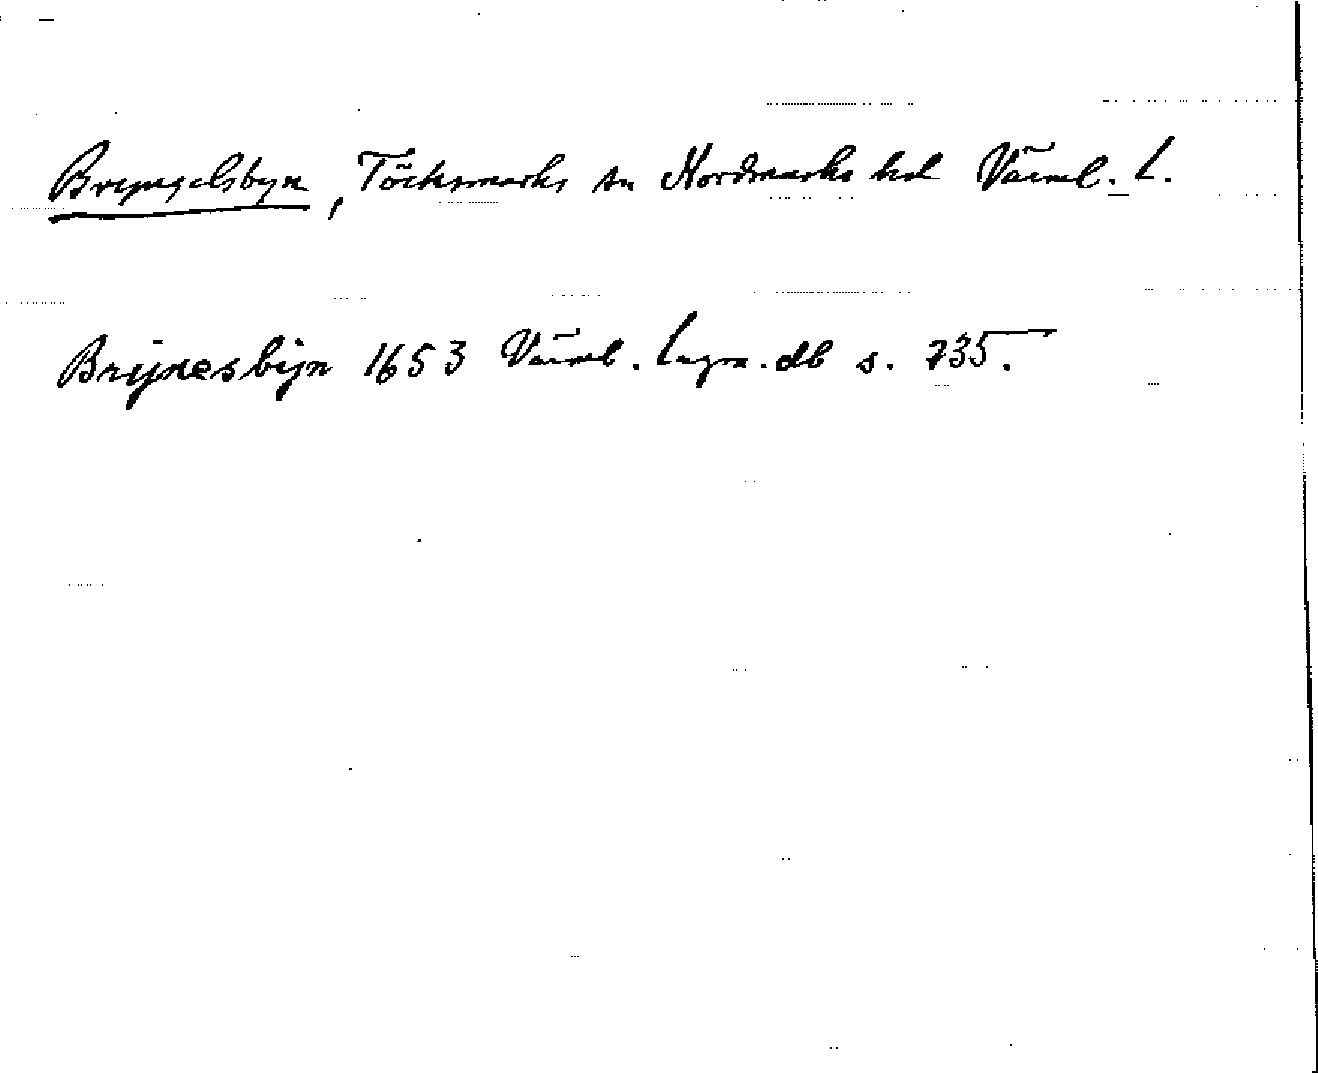 Bryngelsbyn, Töcksmarks sn Nordmarks hd Värml. L.
Brijnesbijn 1653 Värml. Lagm. db s. 735.